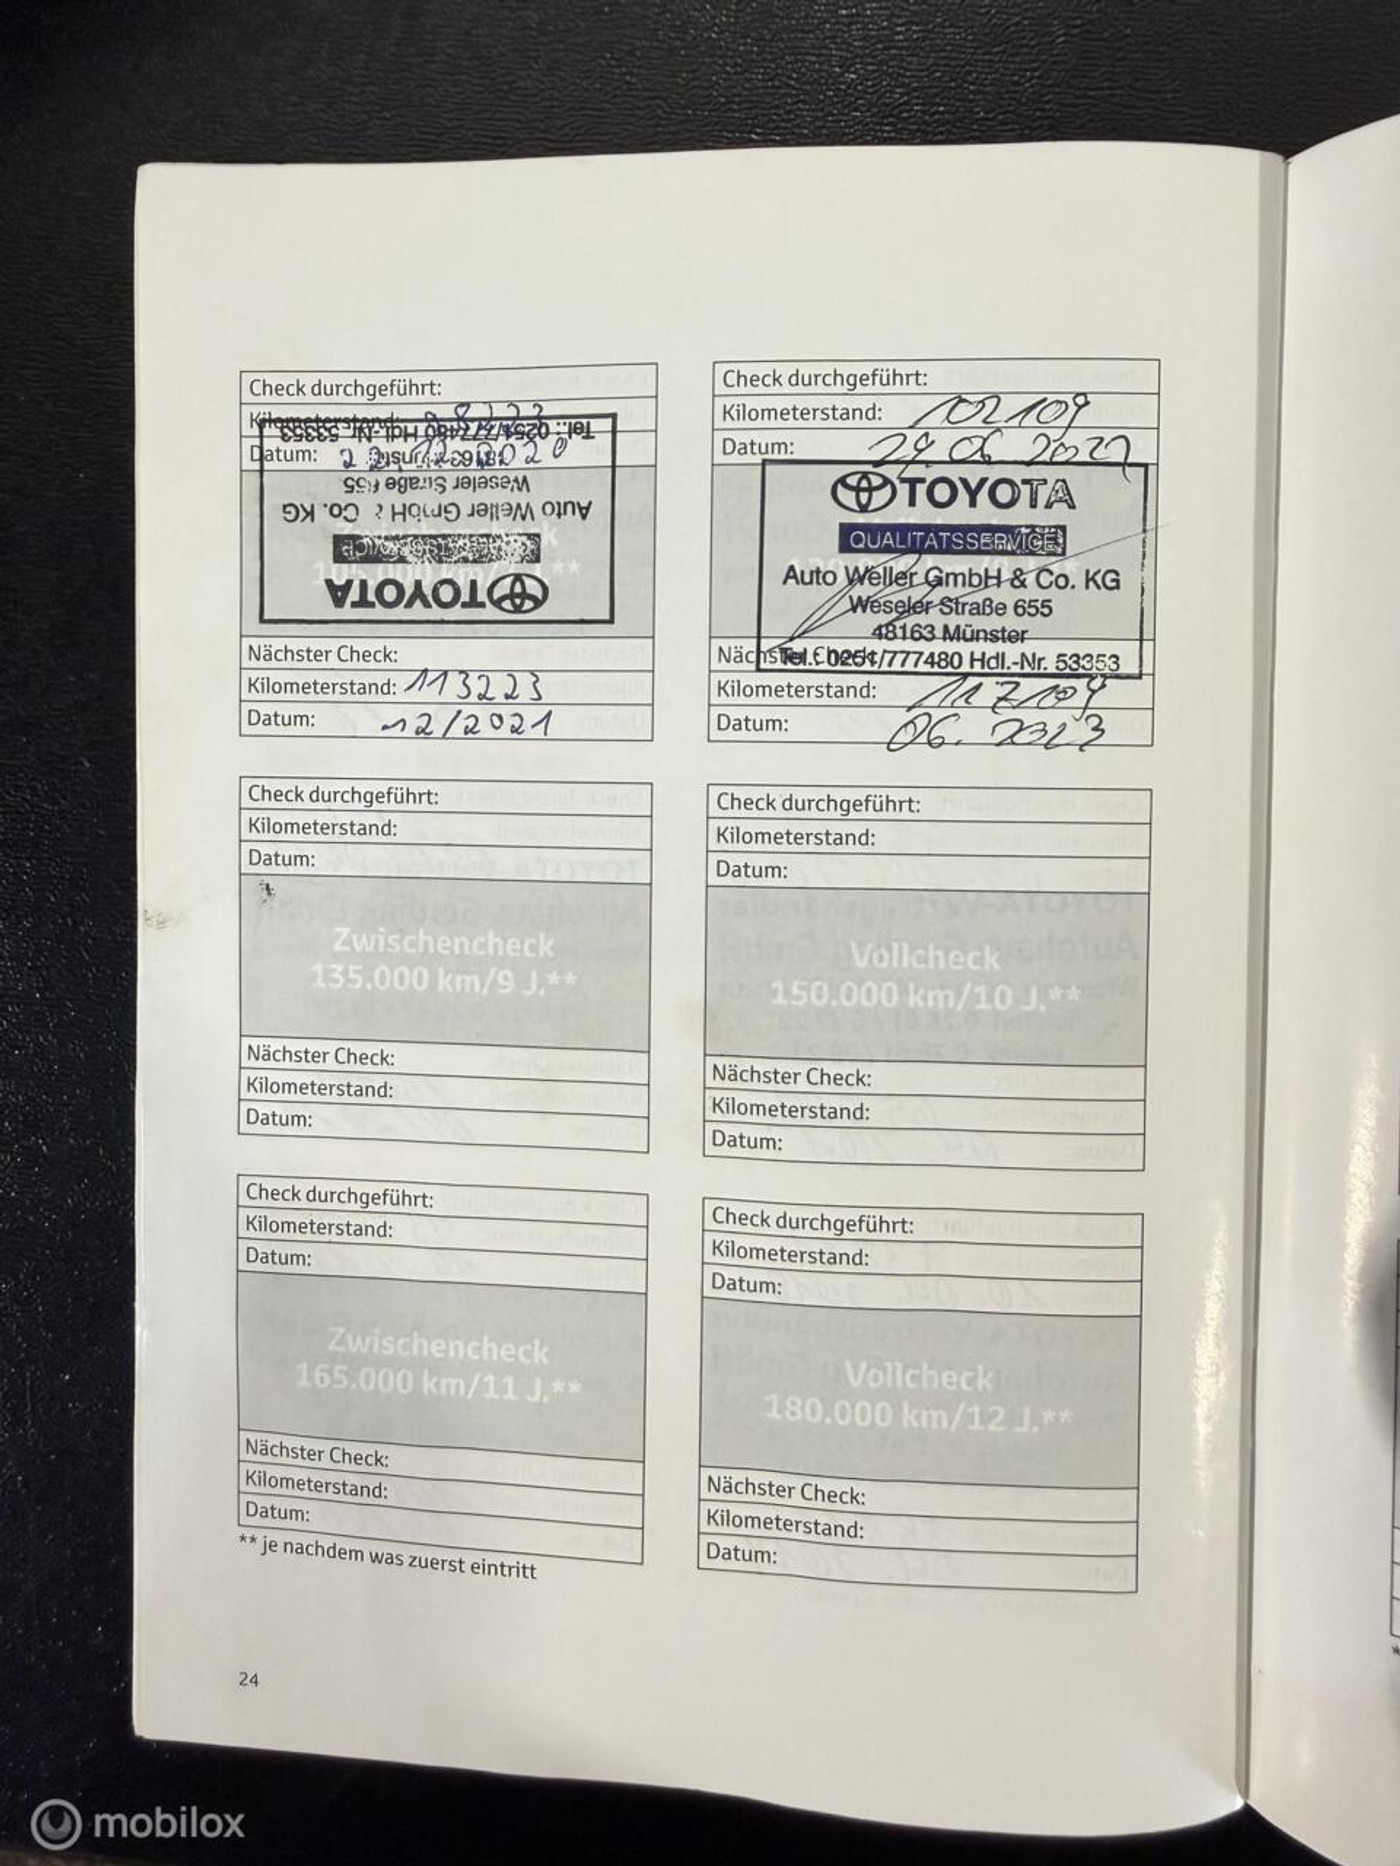 Check durchgeführt:
Kilometerstand: 98223
Datum:
Tel.: 0251/777480 Hdl.-Nr. 53353
48163 Münster
Weseler Straße 655
Auto Weller GmbH & Co. KG
TOYOTA
Nächster Check:
Kilometerstand: 113223
Datum: 12/2021
Check durchgeführt:
Kilometerstand: 102109
Datum: 29 06 2022
TOYOTA
QUALITÄTSSERVICE
Auto Weller GmbH & Co. KG
Weseler Straße 655
48163 Münster
Tel.: 0251/777480 Hdl.-Nr. 53353
Nächster Check:
Kilometerstand: 117109
Datum: 06. 2023
Check durchgeführt:
Kilometerstand:
Datum:
Zwischencheck
135.000 km/9 J.**
Nächster Check:
Kilometerstand:
Datum:
Check durchgeführt:
Kilometerstand:
Datum:
Vollcheck
150.000 km/10 J.**
Nächster Check:
Kilometerstand:
Datum:
Check durchgeführt:
Kilometerstand:
Datum:
Zwischencheck
165.000 km/11 J.**
Nächster Check:
Kilometerstand:
Datum:
Check durchgeführt:
Kilometerstand:
Datum:
Vollcheck
180.000 km/12 J.**
Nächster Check:
Kilometerstand:
Datum:
** je nachdem was zuerst eintritt
24
mobilox